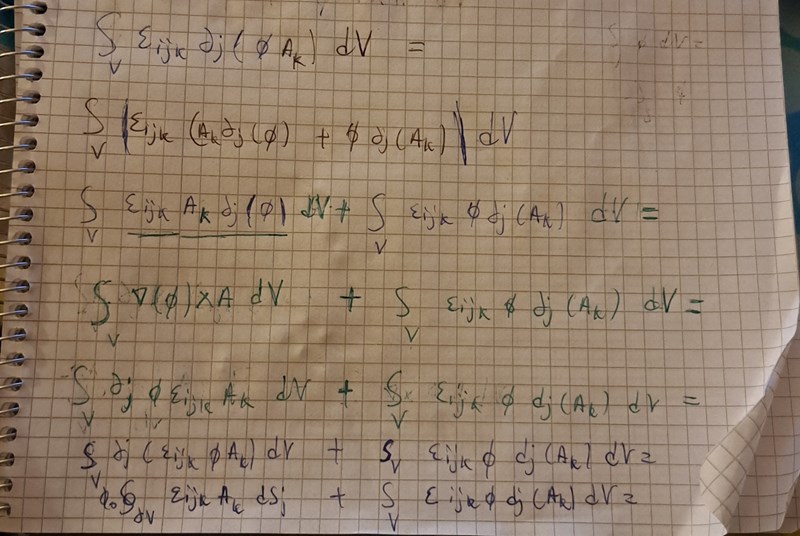 ∫_V ε_ijk ∂_j (ϕ A_k) dV =
∫_V [ε_ijk (A_k ∂_j (ϕ) + ϕ ∂_j (A_k)] dV
∫_V ε_ijk A_k ∂_j (ϕ) dV + ∫_V ε_ijk ϕ ∂_j (A_k) dV =
∫_V ∇(ϕ) × A dV + ∫_V ε_ijk ϕ ∂_j (A_k) dV =
∫_V ∂_j ϕ ε_ijk A_k dV + ∫_V ε_ijk ϕ ∂_j (A_k) dV =
∫_V ∂_j (ε_ijk ϕ A_k) dV + ∫_V ε_ijk ϕ ∂_j (A_k) dV =
ϕ_0 ∮_∂V ε_ijk A_k dS_j + ∫_V ε_ijk ϕ ∂_j (A_k) dV =